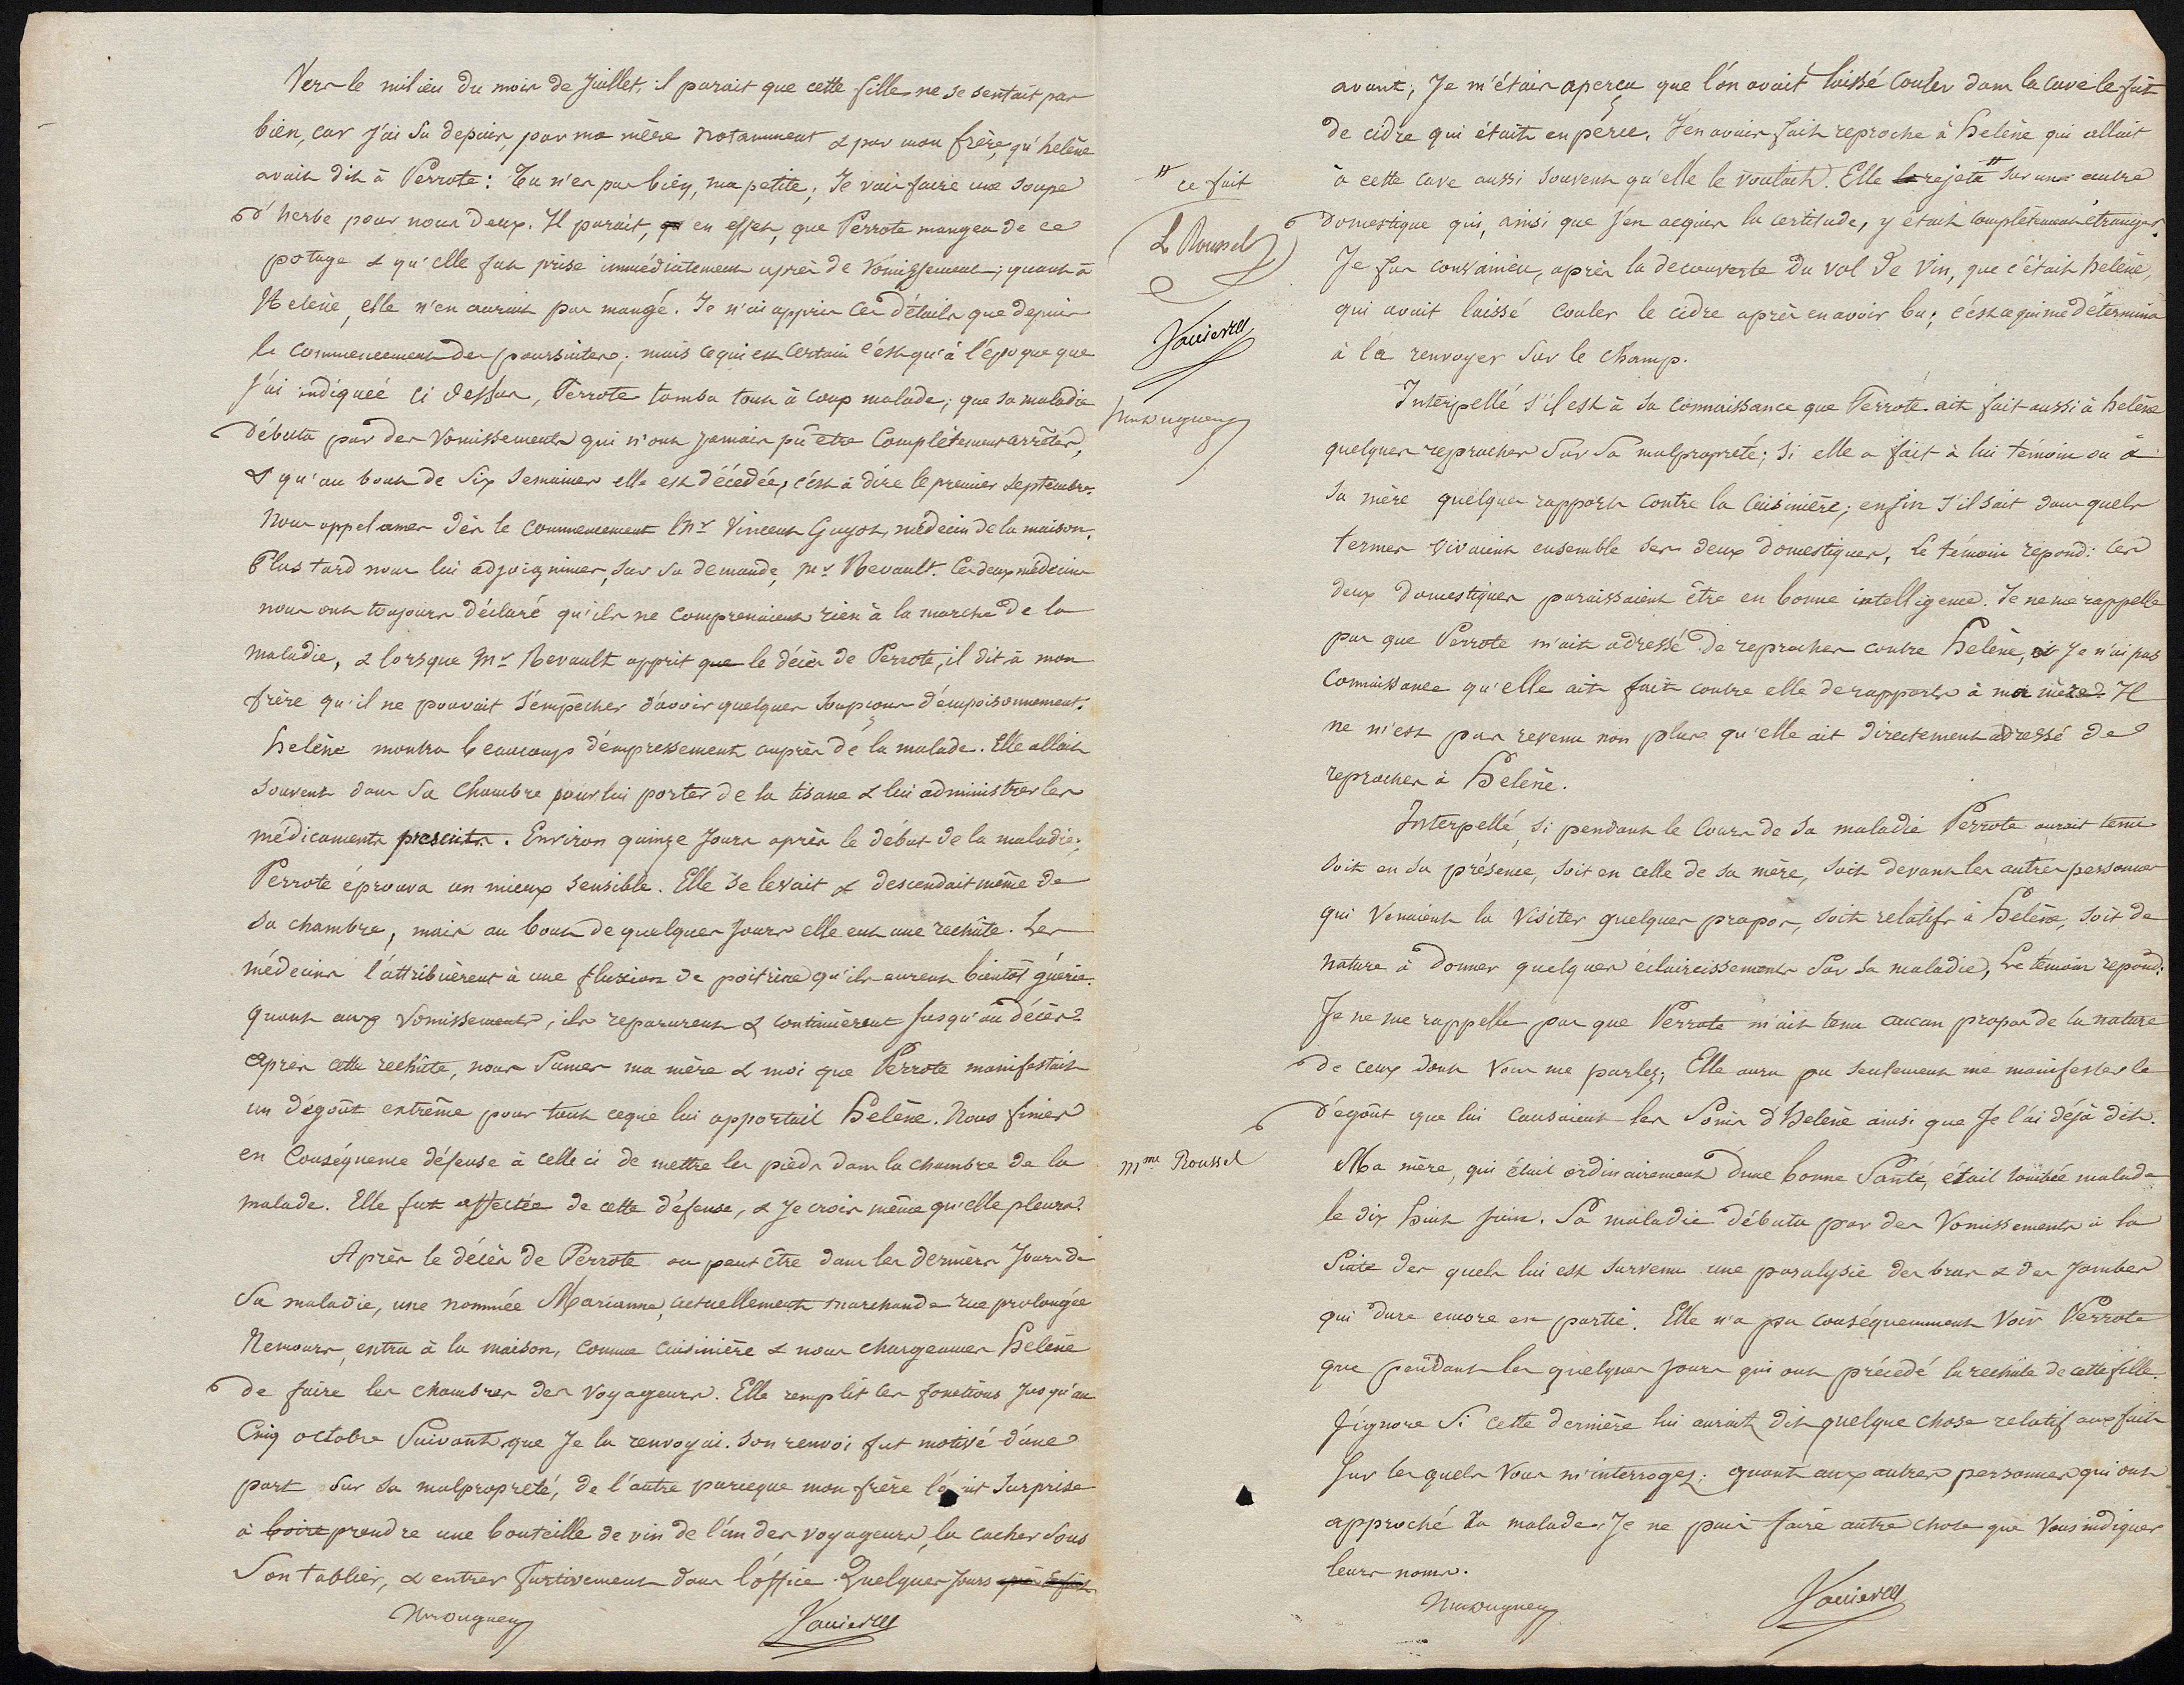 Vers le milieu du mois de Juillet, il parait que cette fille ne se sentait pas
bien, car j'ai su depuis, par ma mère notamment & par mon frère, qu'helène
avait dit à Perrote: Tu n'es pas bien, ma petite, Je vais faire une soupe
d'herbe pour nous deux. Il parait, en effet, que Perrote mangea de ce
potage & qu'elle fut prise immédiatement après de vomissements; quant à
Helène, elle n'en aurait pas mangé. Je n'ai appris ces détails que depuis
le commencement des poursuites; mais ce qui est certain c'est qu'à l'époque que
j'ai indiquée ci dessus, Perrote tomba tout à coup malade; que sa maladie
débuta par des vomissements qui n'ont jamais pû être complètement arrêtés,
& qu'au bout de six semaines elle est décédée, c'est à dire le premier septembre.
Nous appelames dès le commencement Mr Vincent Guyot, médecin de la maison.
Plus tard nous lui adjoignimes, sur sa demande, Mr Revault. Ces deux médecins
nous ont toujours déclaré qu'ils ne comprenaient rien à la marche de la
maladie, & lorsque Mr Revault apprit que le décès de Perrote, il dit à mon
frère qu'il ne pouvait s'empêcher d'avoir quelques soupçons d'empoisonnement.
helène montra beaucoup d'empressement auprès de la malade. Elle allait
souvent dans sa chambre pour lui porter de la tisane & lui administrer les
médicaments prescrits. Environ quinze jours après le début de la maladie,
Perrote éprouva un mieux sensible. Elle se levait & descendait même de
sa chambre, mais au bout de quelques jours elle eut une rechûte. Les
médecins l'attribuèrent à une fluxion de poitrine qu'ils eurent bientôt guérie.
quant aux vomissements, ils reparurent & continuèrent jusqu'au décès.
après cette rechûte, nous sumes ma mère & moi que Perrote manifestait
un dégoût extrême pour tout ce que lui apportait helène. Nous fimes
en conséquence défense à celle ci de mettre les pieds dans la chambre de la
malade. Elle fut affectée de cette défense, & je crois même qu'elle pleura.
Après le décès de Perrote ou peut être dans les derniers jours de
sa maladie, une nommée Marianne, actuellement marchande rue prolongée
Nemours, entra à la maison, comme cuisinière & nous chargeames Helène
de faire les chambres des voyageurs. Elle remplit ces fonctions jusqu'au
cinq octobre suivant, que je la renvoyai. Son renvoi fut motivé d'une
part sur sa malpropreté, de l'autre parceque mon frère l'avait surprise
à boire prendre une bouteille de vin de l'un des voyageurs, la cacher sous
son tablier, & entrer furtivement dans l'office. Quelques jours
Janierre
avant, Je m'étais aperçu que l'on avait laissé couler dans la cave le fût
de cidre qui était en perce. J'en avais fait reproche à helène qui allait
à cette cave aussi souvent qu'elle le voulait. Elle rejeta # sur une autre
# ce fait
domestique qui, ainsi que j'en acquis la certitude, y était complètement étrangère.
L Roussel
Je fus convaincu, après la découverte du vol de vin, que c'était helène,
qui avait laissé couler le cidre après en avoir bu; c'est ce qui me détermina
Janierre
à la renvoyer sur le champ.
Interpellé s'il est à sa connaissance que Perrote ait fait aussi à helène
quelques reproches sur sa malpropreté; si elle a fait à lui témoin ou à
sa mère quelques rapports contre la cuisinière; enfin s'il sait dans quels
termes vivaient ensemble ses deux domestiques, le témoin répond: ces
deux domestiques paraissaient être en bonne intelligence. Je ne me rappelle
pas que Perrote m'ait adressé de reproches contre helène, Je n'ai pas
connaissance qu'elle ait fait contre elle de rapports à ma mère. Il
ne m'est pas revenu non plus qu'elle ait directement adressé de
reproches à helène.
Interpellé, si pendant le cours de sa maladie Perrote aurait tenu
soit en sa présence, soit en celle de sa mère, soit devant les autres personnes
qui venaient la visiter quelques propos, soit relatifs à helène, soit de
nature à donner quelques éclaircissements sur sa maladie, Le témoin répond:
Je ne me rappelle pas que Perrote m'ait tenu aucun propos de la nature
de ceux dont vous me parlez; Elle aura pu seulement me manifester le
dégoût que lui causaient les soins d'helène ainsi que je l'ai déjà dit.
Mme Roussel
Ma mère, qui était ordinairement d'une bonne santé, était tombée malade
le dix huit juin. Sa maladie débuta par des vomissements à la
suite des quels lui est survenu une paralysie des bras & des jambes
qui dure encore en partie. Elle n'a pu conséquemment voir Perrote
que pendant les quelques jours qui ont précédé la rechûte de cette fille.
J'ignore si cette dernière lui aurait dit quelque chose relatif aux faits
sur lesquels vous m'interrogez; quant aux autres personnes qui ont
approché la malade, Je ne puis faire autre chose que vous indiquer
leurs noms.
Janierre